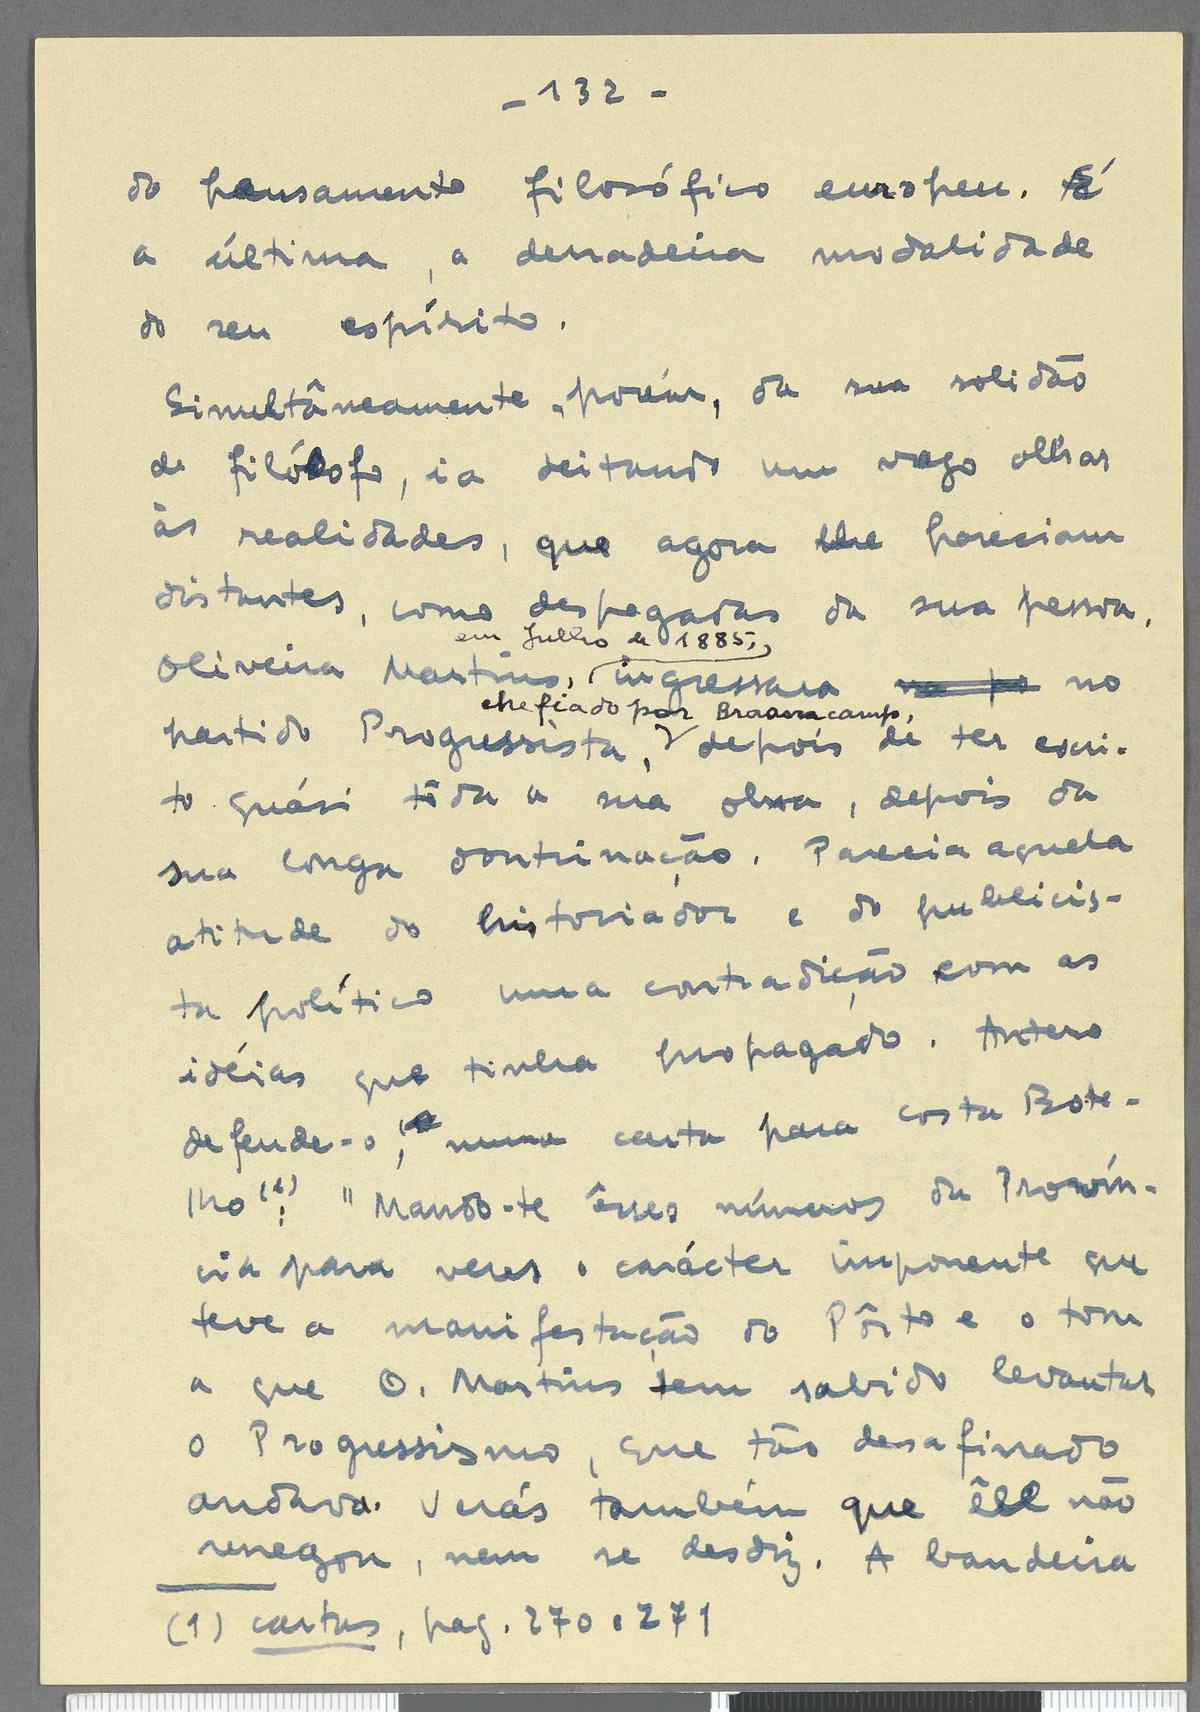 - 132 -
do pensamento filosófico europeu. É
a última, a derradeira modalidade
do seu espírito.
Simultâneamente, porém, da sua solidão
de filósofo, ia deitando um vago olhar
às realidades, que agora lhe pareciam
distantes, como despegadas da sua pessoa.
em Julho de 1885,
Oliveira Martins, ingressara no
chefiado por Braamcamp,
partido Progressista, depois de ter escri-
to quási tôda a sua obra, depois da
sua longa doutrinação. Parecia aquela
atitude do historiador e do publicis-
ta político uma contradição com as
idéias que tinha propagado. Antero
defende-o, numa carta para Costa Bote-
lho (1): "Mando-te êsses números da Provín-
cia para veres o carácter imponente que
teve a manifestação do Pôrto e o tom
a que O. Martins tem sabido levantar
o Progressismo, que tão desafinado
andava. Verás também que êle não
renegou, nem se desdiz. A bandeira
(1) Cartas, pag. 270 e 271